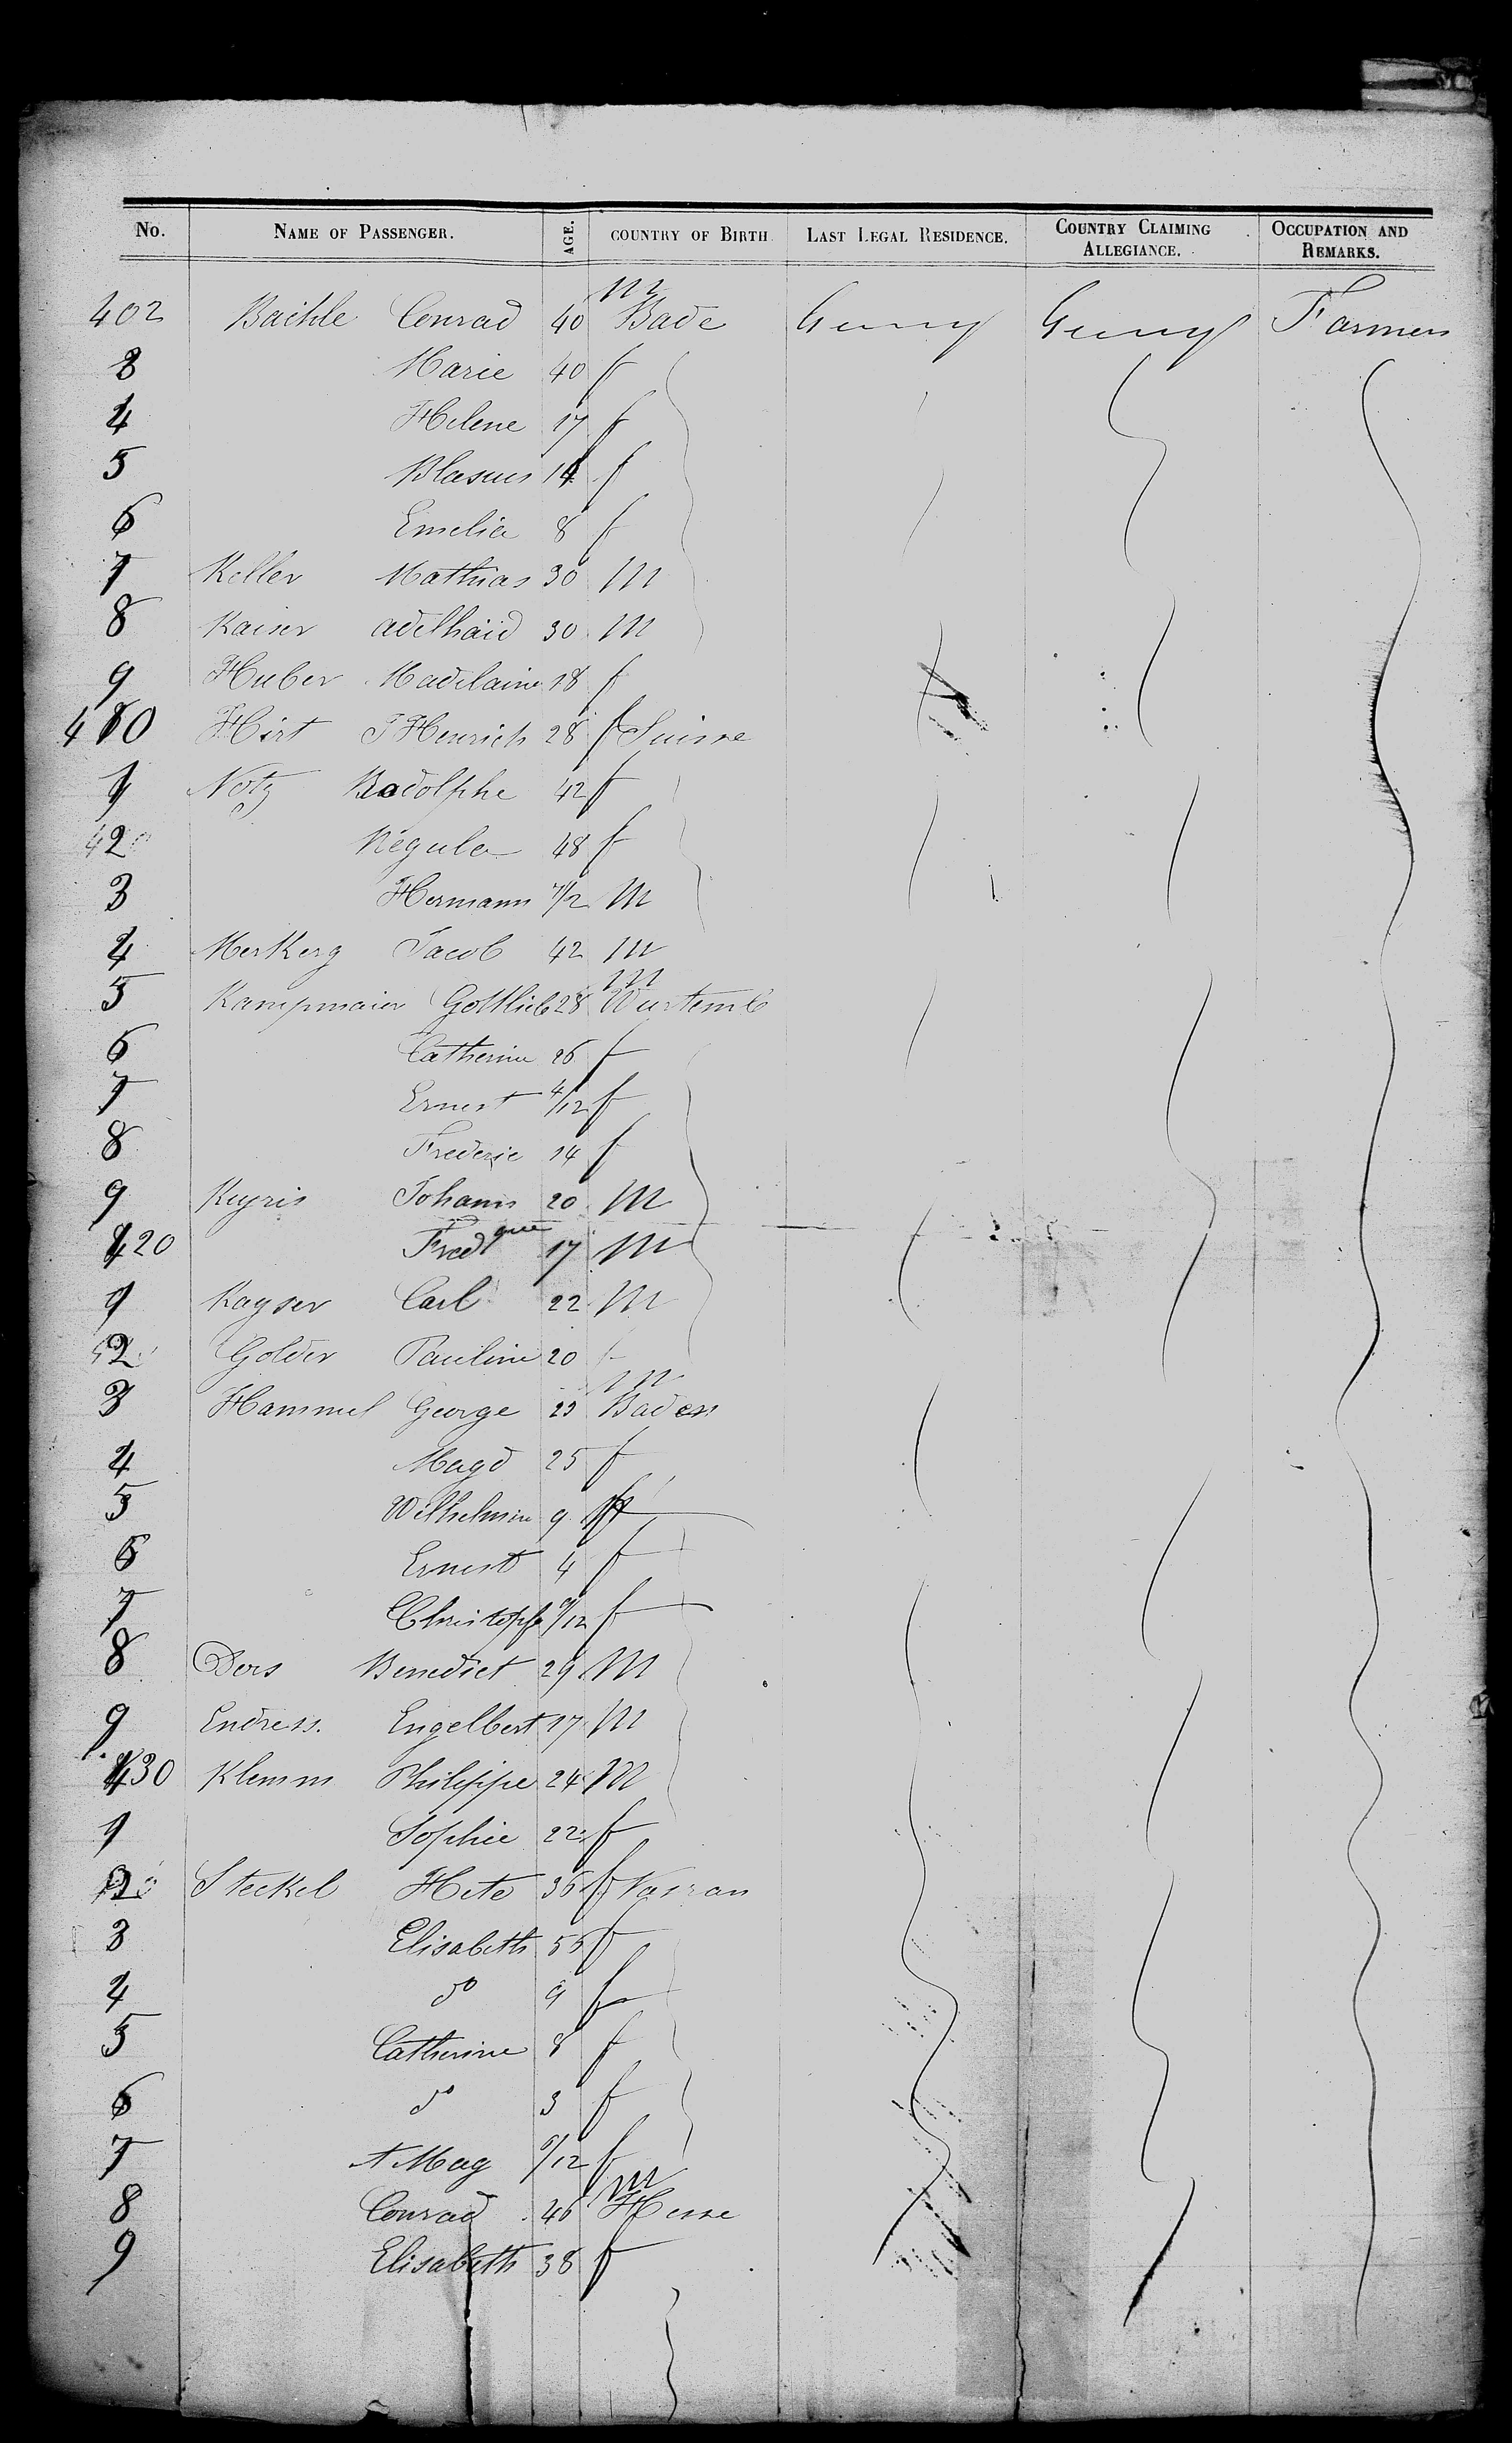 No. NAME OF PASSENGER. AGE. COUNTRY OF BIRTH LAST LEGAL RESIDENCE. COUNTRY CLAIMING ALLEGIANCE. OCCUPATION AND REMARKS.
402 Baihle Conrad 40 m Bade Germy Germy Farmers
3 Marie 40 f
4 Helene 17 f
5 Blasius 14 f
6 Emelia 8 f
7 Keller Mathias 30 m
8 Kaiser adelhaid 30 m
9 Huber Madelaine 18 f
410 Hirt J Henrich 28 f Suisse
1 Notz Rodolphe 42 f
2 Regula 48 f
3 Hermann m
4 Merkerg Jacob 42 m
5 Kampmaier Gottlieb 28 m Wurtemb
6 Catherine 26 f
7 Ernest 4/12 f
8 Frederic 14 f
9 Johann 20 m
420 Fredque 17 m
1 Kayser Carl 22 m
2 Golder Pauline 20 f
3 Hammel George 25 m Baden
4 Magd 25 f
5 Wilhelmine 9 f
6 Ernest 4 f
7 Christophe 9/12 f
8 Dors Benedict 29 m
9 Endress. Engelbert 17 m
430 Klemm Philippe 24 m
1 Sophie 22 f
2 Steckel Hete 36 f Nassau
3 Elisabeth f
4 do 9 f
5 Catherine 8 f
6 do 3 f
7 A Mag 6/12 f
8 Conrad 46 m Hesse
9 Elisabeth 38 f